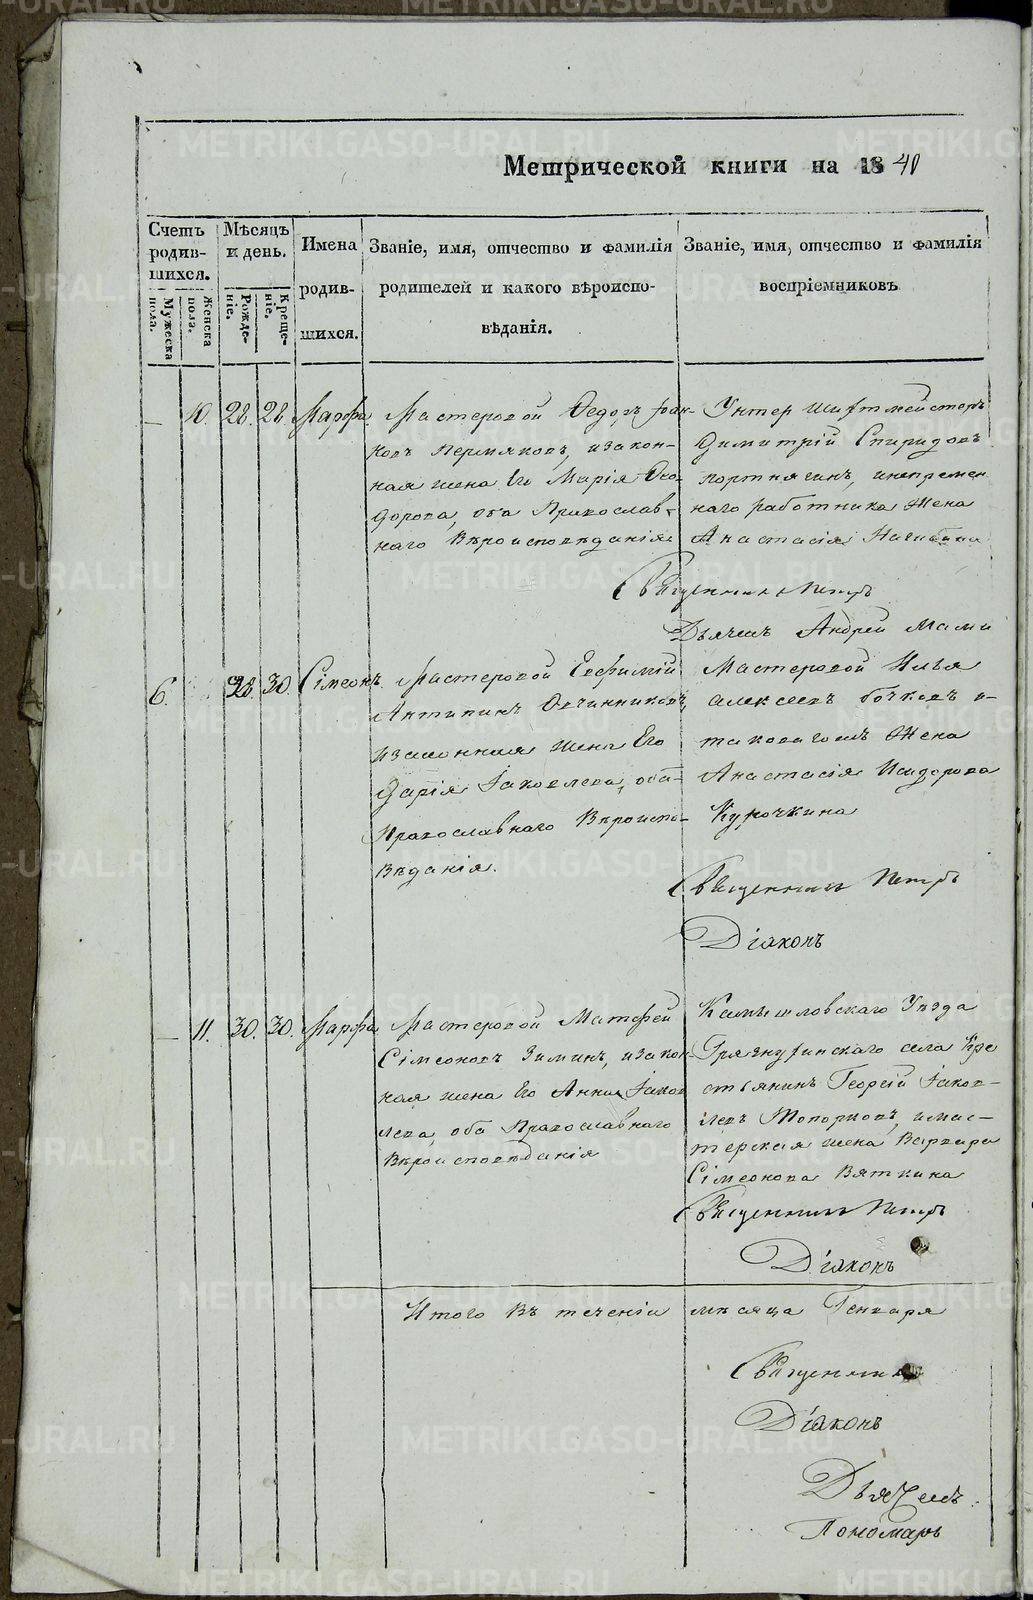 Метрической книги на 1840
Счетъ родив-шихся.
Мѣсяцъ и день.
Имена родив-шихся.
Званіе, имя, отчество и фамилія родителей и какого вѣроиспо-вѣданія.
Званіе, имя, отчество и фамилія воспріемниковъ
Мужеска пола.
Женска пола.
Рожде-ніе.
Креще-ніе.
10. 28. 28. Марфа
Мастеровой Ѳедоръ
ковъ Пермяковъ, изакон-
ная жена Его Марія Ѳео-
дорова, оба Православ-
наго Вѣроисповѣданія
Унтер Шихтмейстеръ
Димитрій Спиридовъ
портнягинъ, инепремен
наго работника Жена
Анастасія
Священникъ Петръ
Дьячекъ Андрей Мами
6. 28. 30. Сімеонъ
Мастеровой Евфимій
Антипинъ Овчинниковъ,
изаконная жена Его
Дарія Іаковлева, оба
Православнаго Вѣроиспо-
вѣданія.
Мастеровой Илья
алексеевъ бочковъ и-
таковагожъ Жена
Анастасія Исидорова
Курочкина
Священникъ Петръ
Діаконъ
11. 30. 30. Марфа
Мастеровой Матфей
Сімеоновъ Зиминъ, изакон-
ная жена Его Анна Іаков
лева, оба Православнаго
Вѣроисповѣданія
Камышловскаго Уѣзда
Грязнушинскаго села Кре
стьянинъ Георгій Іаков-
левъ Топорковъ, имас-
терская жена Варвара
Сімеонова Вяткина
Священникъ Петръ
Діаконъ
Итого Въ теченіи мѣсяца Генваря
Священникъ
Діаконъ
Дьячекъ
Пономарь
METRIKI.GASO-URAL.RU